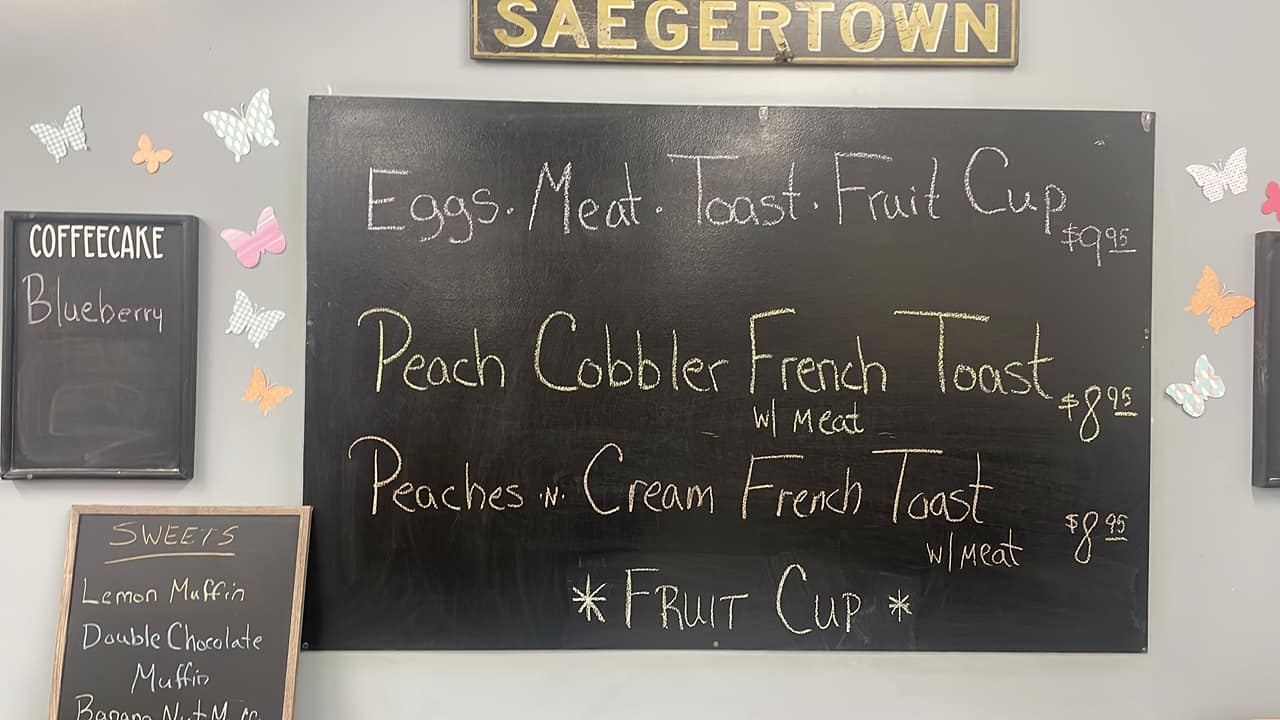 SAEGERTOWN
Eggs. Meat. Toast. Fruit Cup $9.95
Peach Cobbler French Toast $8.95
w/ Meat
Peaches .N. Cream French Toast $8.95
w/ Meat
* FRUIT CUP *
COFFEECAKE
Blueberry
SWEETS
Lemon Muffin
Double Chocolate
Muffin
Banana Nut